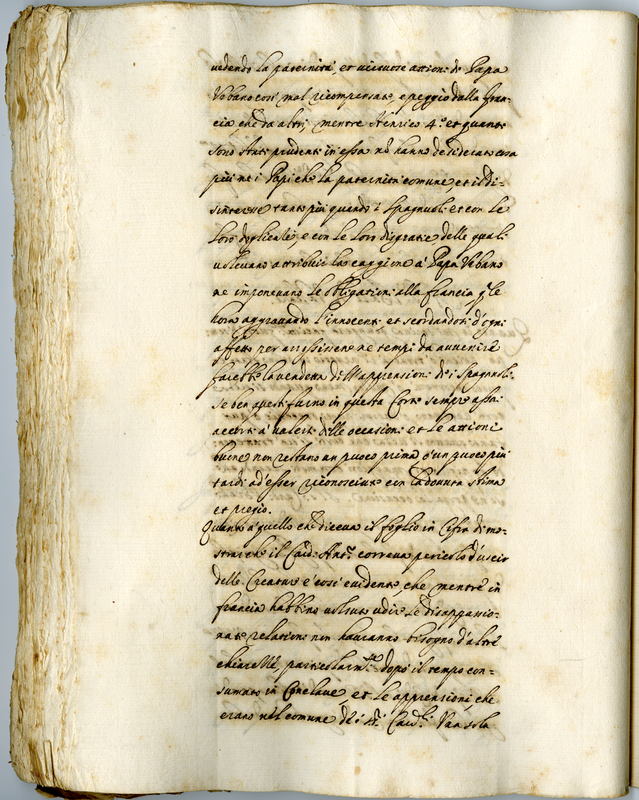 vedendo la paternità, et virtuose attioni di Papa
Vrbano così mal ricompensate, e peggio dalla Fran-
cia, che da altri, mentre Henrico 4.º et quanti
sono stati prudenti in essa nõ hanno desiderato cosa
più ne i Papi che la paternità comune, et il di-
sinteresse tanto più quando i Spagnuoli et con le
loro doglienze e con le loro disgratie delle quali
volevano attribuir la caggione à Papa Vrbano
ne imponevano le obligationi alla francia
hora aggravando l'innocente et scordandosi d'ogni
affetto per ne tempi da avvenire
farebbe la vendetta dell'apprensioni de i Spagnoli
se ben questi furno in questa Corte sempre
à valersi delle occasioni et le attioni
buone non restano un puoco prima ò un puoco più
tardi ad'esser riconosciute con la dovuta stima
et pregio.
Quanto à quello che diceva il foglio in Cifra di mo-
strar che il Card. Ant.º correva pericolo d'uscir
delle Creature è così evidente, che mentre in
francia habbino voluto udir le disappassio-
nate relationi non havranno bisogno d'altre
chiarezze, particolarm.te dopò il tempo con-
sumato in Conclave et le apprensioni, che
erano nel comune de i SS.ri Card.li Una sola